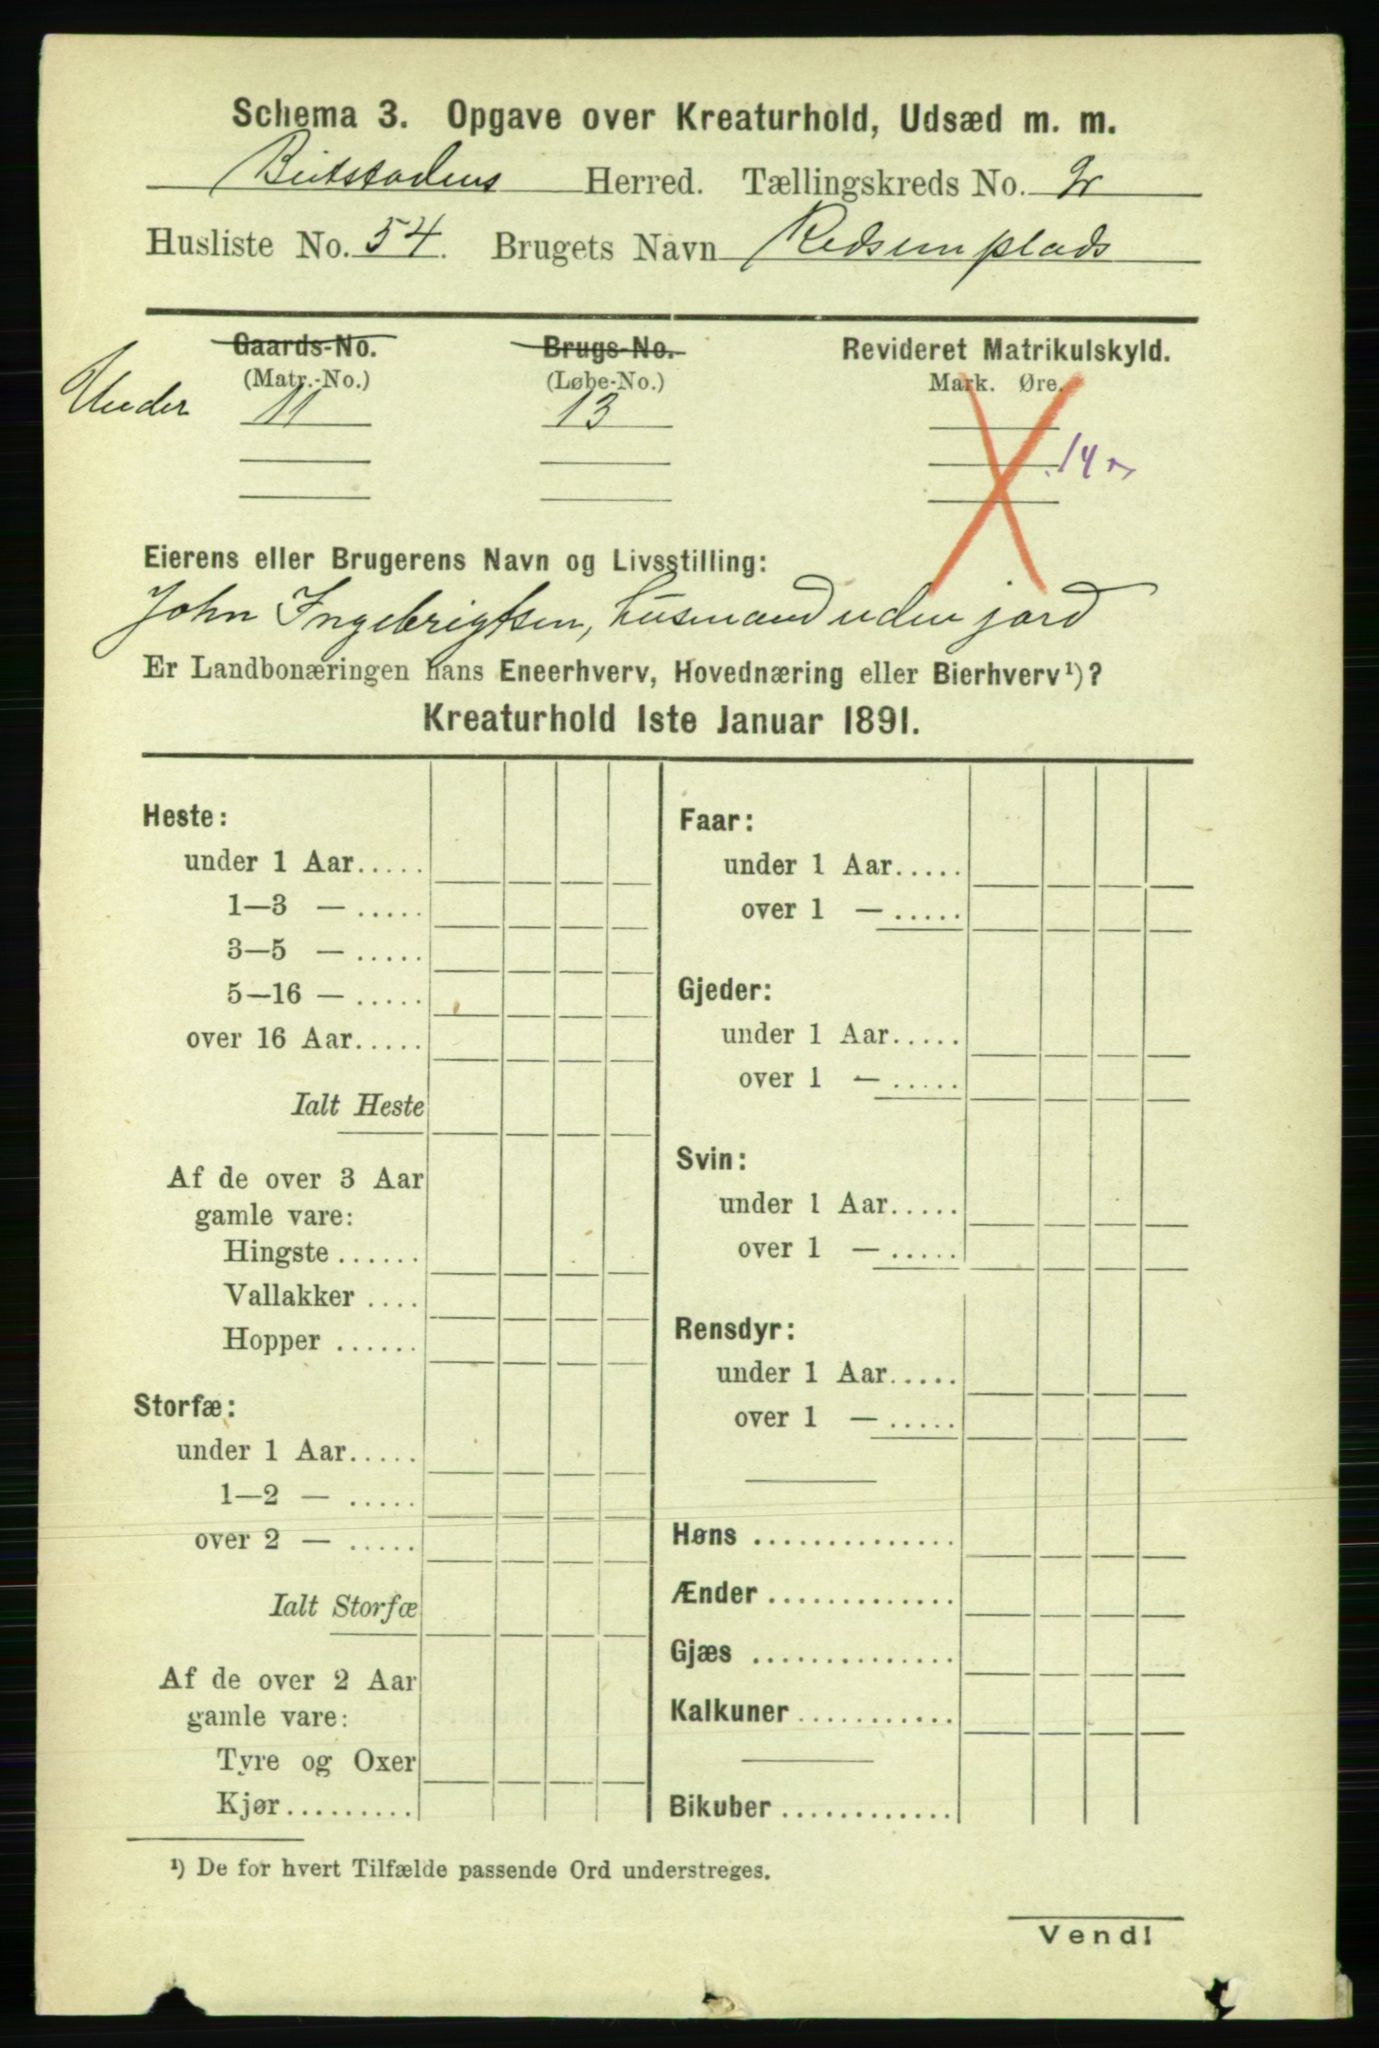 Schema 3. Opgave over Kreaturhold, Udsæd m. m.
Beitstadens Herred. Tællingskreds No. 2
Husliste No. 54. Brugets Navn Redsemplads
Gaards-No. Brugs-No. Revideret Matrikulskyld.
(Matr.-No.) (Løbe-No.) Mark. Øre.
Under 11 13
14
Eierens eller Brugerens Navn og Livsstilling:
John Ingebrigtsen, husmand uden jord
Er Landbonæringen hans Eneerhverv, Hovednæring eller Bierhverv¹)?
Kreaturhold 1ste Januar 1891.
Heste:
under 1 Aar.....
1—3 — .....
3—5 — .....
5—16 — .....
over 16 Aar.....
Ialt Heste
Af de over 3 Aar
gamle vare:
Hingste ......
Vallakker ....
Hopper ......
Storfæ:
under 1 Aar.....
1—2 — .....
over 2 — .....
Ialt Storfæ
Af de over 2 Aar
gamle vare:
Tyre og Oxer
Kjør.........
Faar:
under 1 Aar.....
over 1 — .....
Gjeder:
under 1 Aar.....
over 1 — .....
Svin:
under 1 Aar.....
over 1 — .....
Rensdyr:
under 1 Aar.....
over 1 — .....
Høns ..............
Ænder .............
Gjæs ..............
Kalkuner ...........
Bikuber ............
¹) De for hvert Tilfælde passende Ord understreges.
Vend!